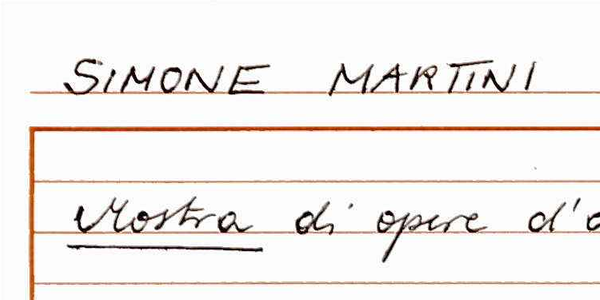 SIMONE MARTINI
Mostra di opere d'a